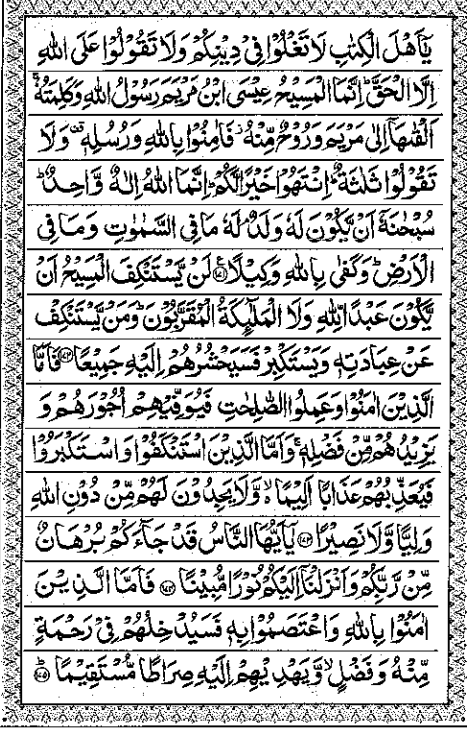 يٰۤاَهْلَ الْكِتٰبِ لَا تَغْلُوْا فِيْ دِيْنِكُمْ وَلَا تَقُوْلُوْا عَلَى اللّٰهِ
اِلَّا الْحَقَّ ؕ اِنَّمَا الْمَسِيْحُ عِيْسَى ابْنُ مَرْيَمَ رَسُوْلُ اللّٰهِ وَكَلِمَتُهٗ ۚ
اَلْقٰىهَاۤ اِلٰى مَرْيَمَ وَرُوْحٌ مِّنْهُ ؗ فَاٰمِنُوْا بِاللّٰهِ وَرُسُلِهٖ ۚ وَلَا
تَقُوْلُوْا ثَلٰثَةٌ ؕ اِنْتَهُوْا خَيْرًا لَّكُمْ ؕ اِنَّمَا اللّٰهُ اِلٰهٌ وَّاحِدٌ ؕ
سُبْحٰنَهٗۤ اَنْ يَّكُوْنَ لَهٗ وَلَدٌ ۘ لَهٗ مَا فِي السَّمٰوٰتِ وَمَا فِي
الْاَرْضِ ؕ وَكَفٰى بِاللّٰهِ وَكِيْلًا ﴿۱۷۱﴾ لَنْ يَّسْتَنْكِفَ الْمَسِيْحُ اَنْ
يَّكُوْنَ عَبْدًا لِّلّٰهِ وَلَا الْمَلٰٓئِكَةُ الْمُقَرَّبُوْنَ ؕ وَمَنْ يَّسْتَنْكِفْ
عَنْ عِبَادَتِهٖ وَيَسْتَكْبِرْ فَسَيَحْشُرُهُمْ اِلَيْهِ جَمِيْعًا ﴿۱۷۲﴾ فَاَمَّا
الَّذِيْنَ اٰمَنُوْا وَعَمِلُوا الصّٰلِحٰتِ فَيُوَفِّيْهِمْ اُجُوْرَهُمْ وَ
يَزِيْدُهُمْ مِّنْ فَضْلِهٖ ۚ وَاَمَّا الَّذِيْنَ اسْتَنْكَفُوْا وَاسْتَكْبَرُوْا
فَيُعَذِّبُهُمْ عَذَابًا اَلِيْمًا ۙ وَّلَا يَجِدُوْنَ لَهُمْ مِّنْ دُوْنِ اللّٰهِ
وَلِيًّا وَّلَا نَصِيْرًا ﴿۱۷۳﴾ يٰۤاَيُّهَا النَّاسُ قَدْ جَآءَكُمْ بُرْهَانٌ
مِّنْ رَّبِّكُمْ وَاَنْزَلْنَاۤ اِلَيْكُمْ نُوْرًا مُّبِيْنًا ﴿۱۷۴﴾ فَاَمَّا الَّذِيْنَ
اٰمَنُوْا بِاللّٰهِ وَاعْتَصَمُوْا بِهٖ فَسَيُدْخِلُهُمْ فِيْ رَحْمَةٍ
مِّنْهُ وَفَضْلٍ ۙ وَّيَهْدِيْهِمْ اِلَيْهِ صِرَاطًا مُّسْتَقِيْمًا ﴿۱۷۵﴾